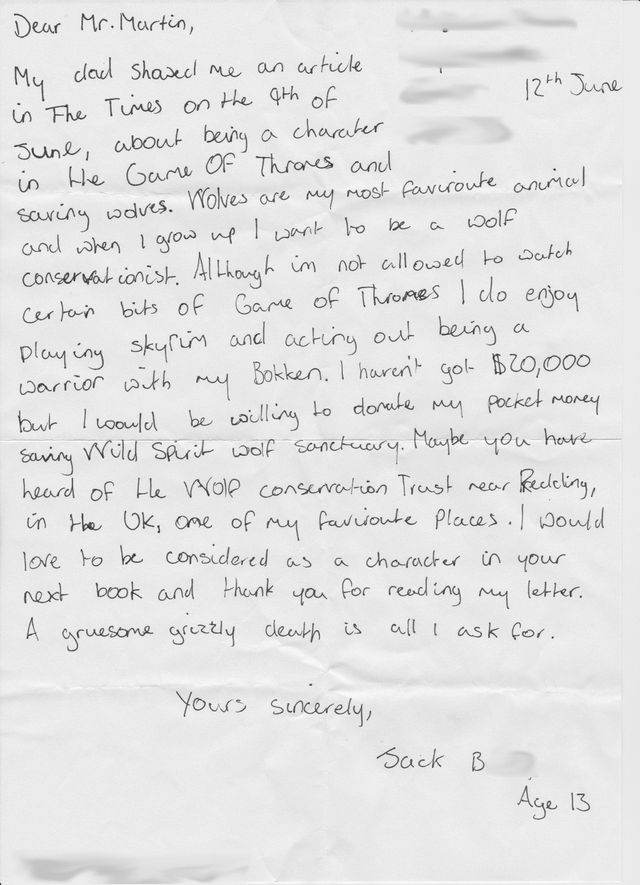 Dear Mr. Martin,
12th June
My dad showed me an article
in The Times on the 9th of
June, about being a charater
in the Game Of Thrones and
saving wolves. Wolves are my most faviroute animal
and when I grow up I want to be a wolf
conservationist. Although im not allowed to watch
certain bits of Game of Thrones I do enjoy
playing skyrim and acting out being a
warrior with my Bokken. I haven't got $20,000
but I would be willing to donate my pocket money
saving Wild Spirit wolf sanctuary. Maybe you have
heard of the Wolf conservation Trust near Redding,
in the UK, one of my faviroute places. I would
love to be considered as a character in your
next book and thank you for reading my letter.
A gruesome grizzly death is all I ask for.
Yours sincerely,
Jack B
Age 13